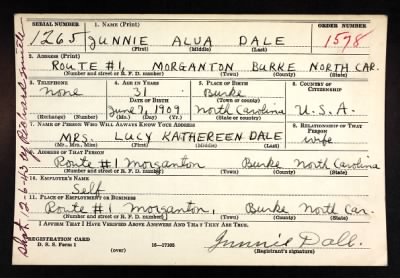 SERIAL NUMBER 1. NAME (Print) ORDER NUMBER
1265 JUNNIE ALVA DALE 1578
(First) (Middle) (Last)
2. ADDRESS (Print)
ROUTE #1, MORGANTON BURKE NORTH CAR.
(Number and street or R. F. D. number) (Town) (County) (State)
3. TELEPHONE 4. AGE IN YEARS 5. PLACE OF BIRTH 6. COUNTRY OF CITIZENSHIP
none 31 Burke
DATE OF BIRTH (Town or county)
June 9, 1909 North Carolina U.S.A.
(Exchange) (Number) (Mo.) (Day) (Yr.) (State or country)
7. NAME OF PERSON WHO WILL ALWAYS KNOW YOUR ADDRESS 8. RELATIONSHIP OF THAT PERSON
MRS. LUCY KATHEREEN DALE wife
(Mr., Mrs., Miss) (First) (Middle) (Last)
9. ADDRESS OF THAT PERSON
Route #1 Morganton Burke North Carolina
(Number and street or R. F. D. number) (Town) (County) (State)
10. EMPLOYER'S NAME
Self
11. PLACE OF EMPLOYMENT OR BUSINESS
Route #1 Morganton, Burke North Car.
(Number and street or R. F. D. number) (Town) (County) (State)
I AFFIRM THAT I HAVE VERIFIED ABOVE ANSWERS AND THAT THEY ARE TRUE.
REGISTRATION CARD
D. S. S. Form 1 (over) 16—17105 Junnie Dale.
12-6-43